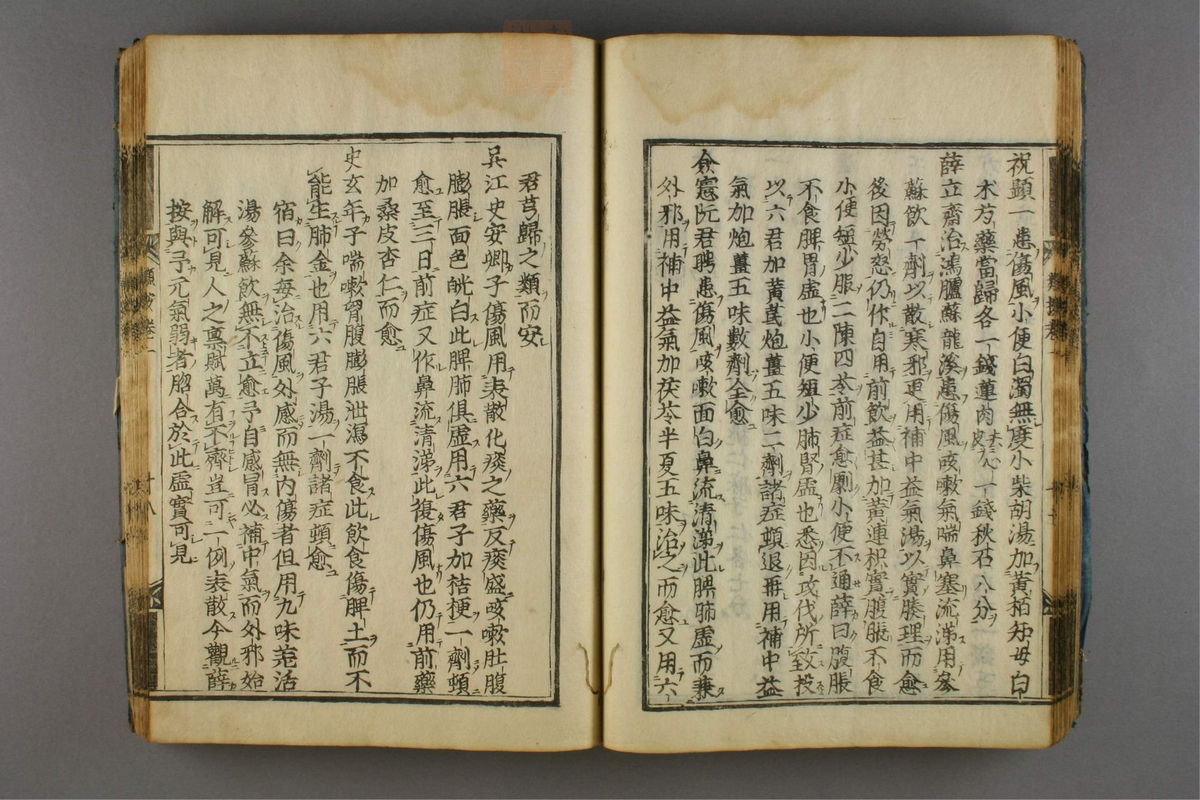 祝顕一患傷風小便白濁無度小柴胡湯加黄栢知母白
术芍藥當歸各一錢蓮肉去心皮一錢秋石八分
薛立齋治鴻臚蘇龍溪患傷風咳嗽氣喘鼻塞流涕用參
蘇飲一劑以散寒邪更用補中益氣湯以實腠理而愈
後因勞怒仍作自用前飲益甚加黄連枳實腹脹不食
小便短少服二陳四苓前症愈劇小便不通薛曰腹脹
不食脾胃虚也小便短少肺腎虚也悉因攻伐所致投
以六君加黄芪炮薑五味二劑諸症頓退再用補中益
氣加炮薑五味數劑全愈
僉憲阮君聘患傷風咳嗽面白鼻流清涕此脾肺虚而兼
外邪用補中益氣加茯苓半夏五味治之而愈又用六
君芎歸之類而安
吳江史安卿子傷風用表散化痰之藥反痰盛咳嗽肚腹
膨脹面色㿠白此脾肺俱虚用六君子加桔梗一劑頓
愈至三日前症又作鼻流清涕此復傷風也仍用前藥
加桑皮杏仁而愈
史玄年子喘嗽胷腹膨脹泄瀉不食此飲食傷脾土而不
能生肺金也用六君子湯一劑諸症頓愈
宿曰余每治傷風外感而無内傷者但用九味羌活
湯參蘇飲無不立愈予自感冒必補中氣而外邪始
解可見人之稟賦萬有不齊豈可一例表散今觀薛
按與予元氣弱者脗合於此虚實可見
類按卷一
十八